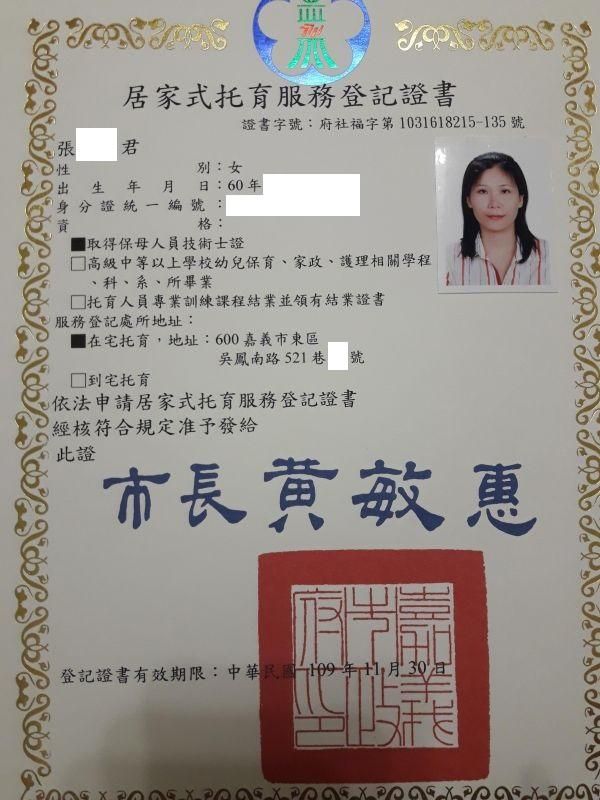 居家式托育服務登記證書
證書字號：府社福字第1031618215-135號
張 君
性別：女
出生年月日：60年
身分證統一編號：
資格：
■取得保母人員技術士證
□高級中等以上學校幼兒保育、家政、護理相關學程
、科、系、所畢業
□托育人員專業訓練課程結業並領有結業證書
服務登記處所地址：
■在宅托育，地址：600 嘉義市東區
吳鳳南路 521 巷 號
□到宅托育
依法申請居家式托育服務登記證書
經核符合規定准予發給
此證
市長黃敏惠
嘉義市政府印
登記證書有效期限：中華民國 109 年 11 月 30 日